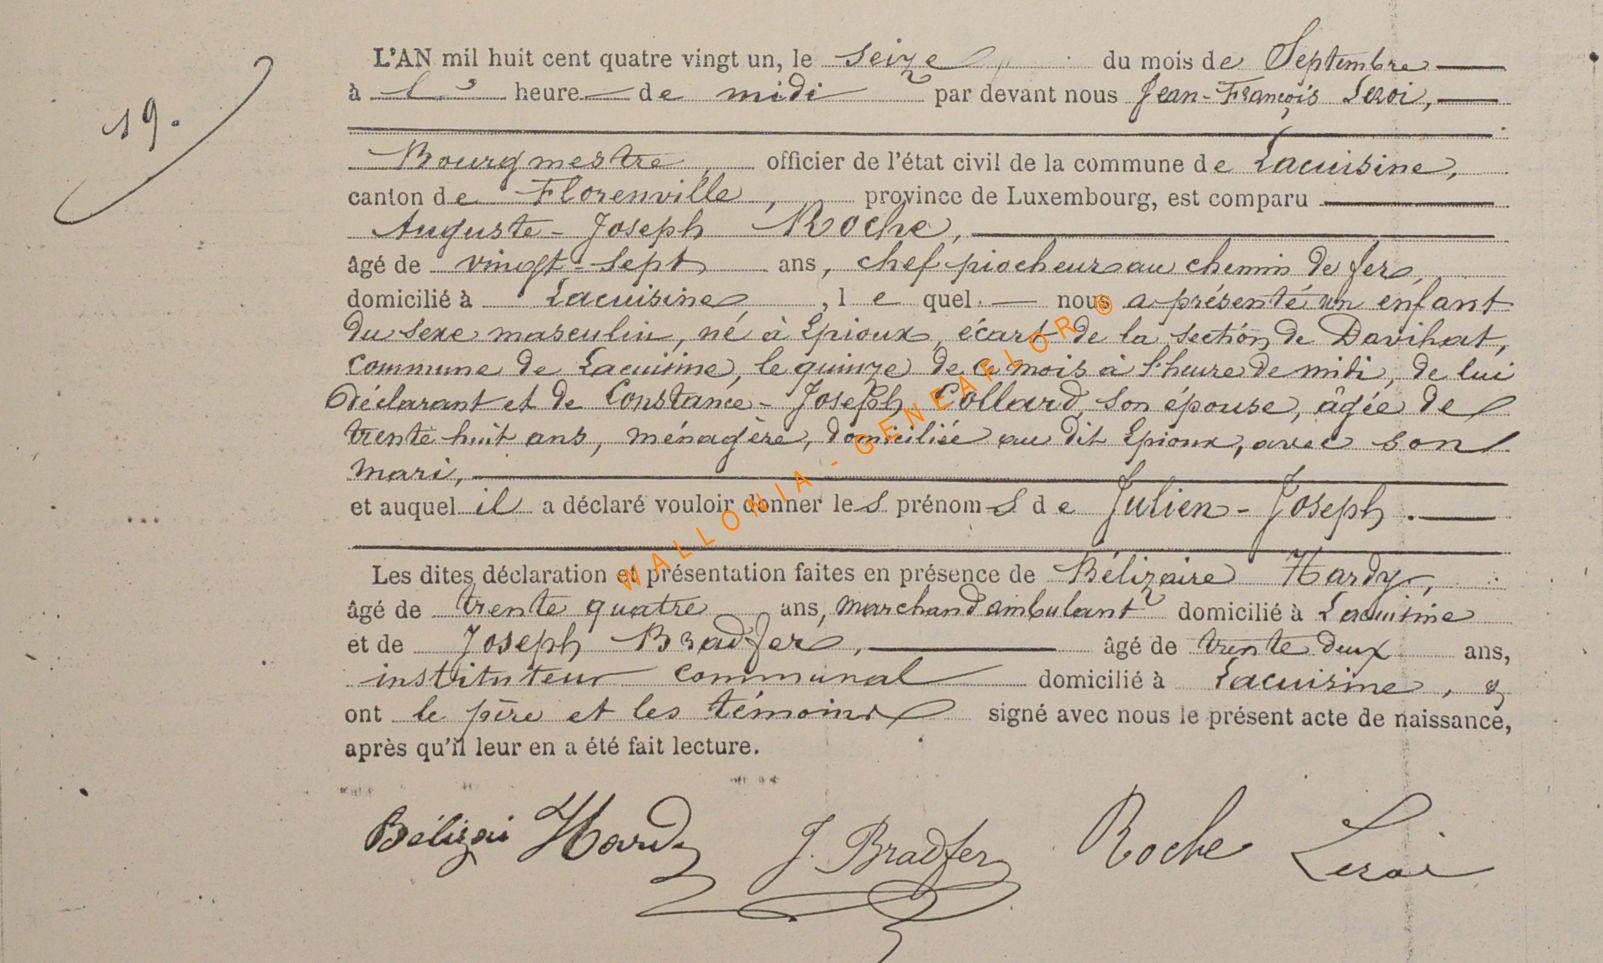 19.
L'AN mil huit cent quatre vingt un, le seize du mois de Septembre
à l' heure de midi par devant nous Jean-François Leroi,
Bourgmestre, officier de l'état civil de la commune de Lacuisine,
canton de Florenville, province de Luxembourg, est comparu
Auguste-Joseph Roche,
âgé de vingt-sept ans, chef piocheur au chemin de fer,
domicilié à Lacuisine, lequel nous a présenté un enfant
du sexe masculin, né à Epioux, écart de la section de Davihat,
commune de Lacuisine, le quinze de ce mois à l'heure de midi, de lui
déclarant et de Constance-Joseph Collard, son épouse, âgée de
trente huit ans, ménagère, domiciliée au dit Epioux, avec son
mari,
et auquel il a déclaré vouloir donner les prénoms de Julien-Joseph.
Les dites déclaration et présentation faites en présence de Bélizaire Hardy,
âgé de trente quatre ans, marchand ambulant domicilié à Lacuisine
et de Joseph Bradfer, âgé de trente deux ans,
instituteur communal domicilié à Lacuisine, &
ont le père et les témoins signé avec nous le présent acte de naissance,
après qu'il leur en a été fait lecture.
Hardy J. Bradfer Roche Leroi
WALLONIA - GENEAFLOR ©